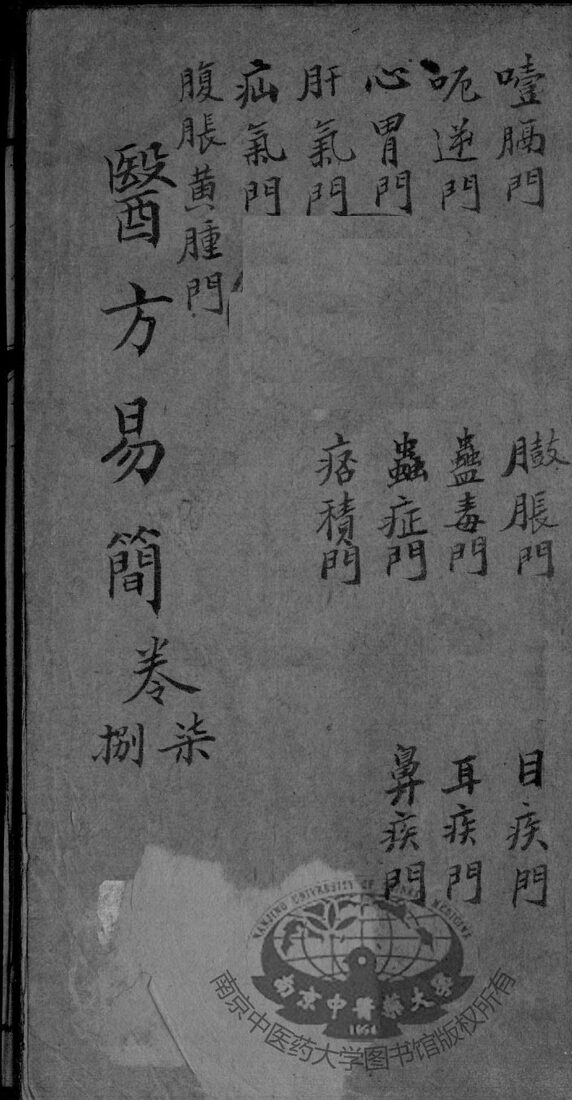 噎膈門
呃逆門
心胃門
肝氣門
疝氣門
腹脹黄腫門
臌脹門
蠱毒門
蟲症門
痞積門
目疾門
耳疾門
鼻疾門
醫方易簡
卷
柒
捌
NANJING UNIVERSITY OF CHINESE MEDICINE
南京中醫藥大學
1954
南京中医药大学图书馆版权所有